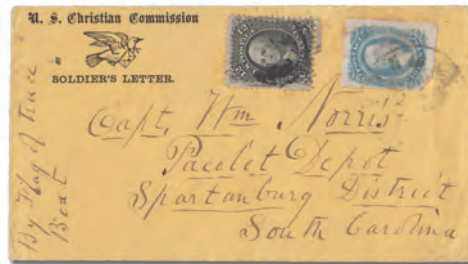 U. S. Christian Commission
SOLDIER'S LETTER.
By Flag of truce
Boat
Capt, Wm Norris
Pacolet Depot
Spartanburg District
South Carolina